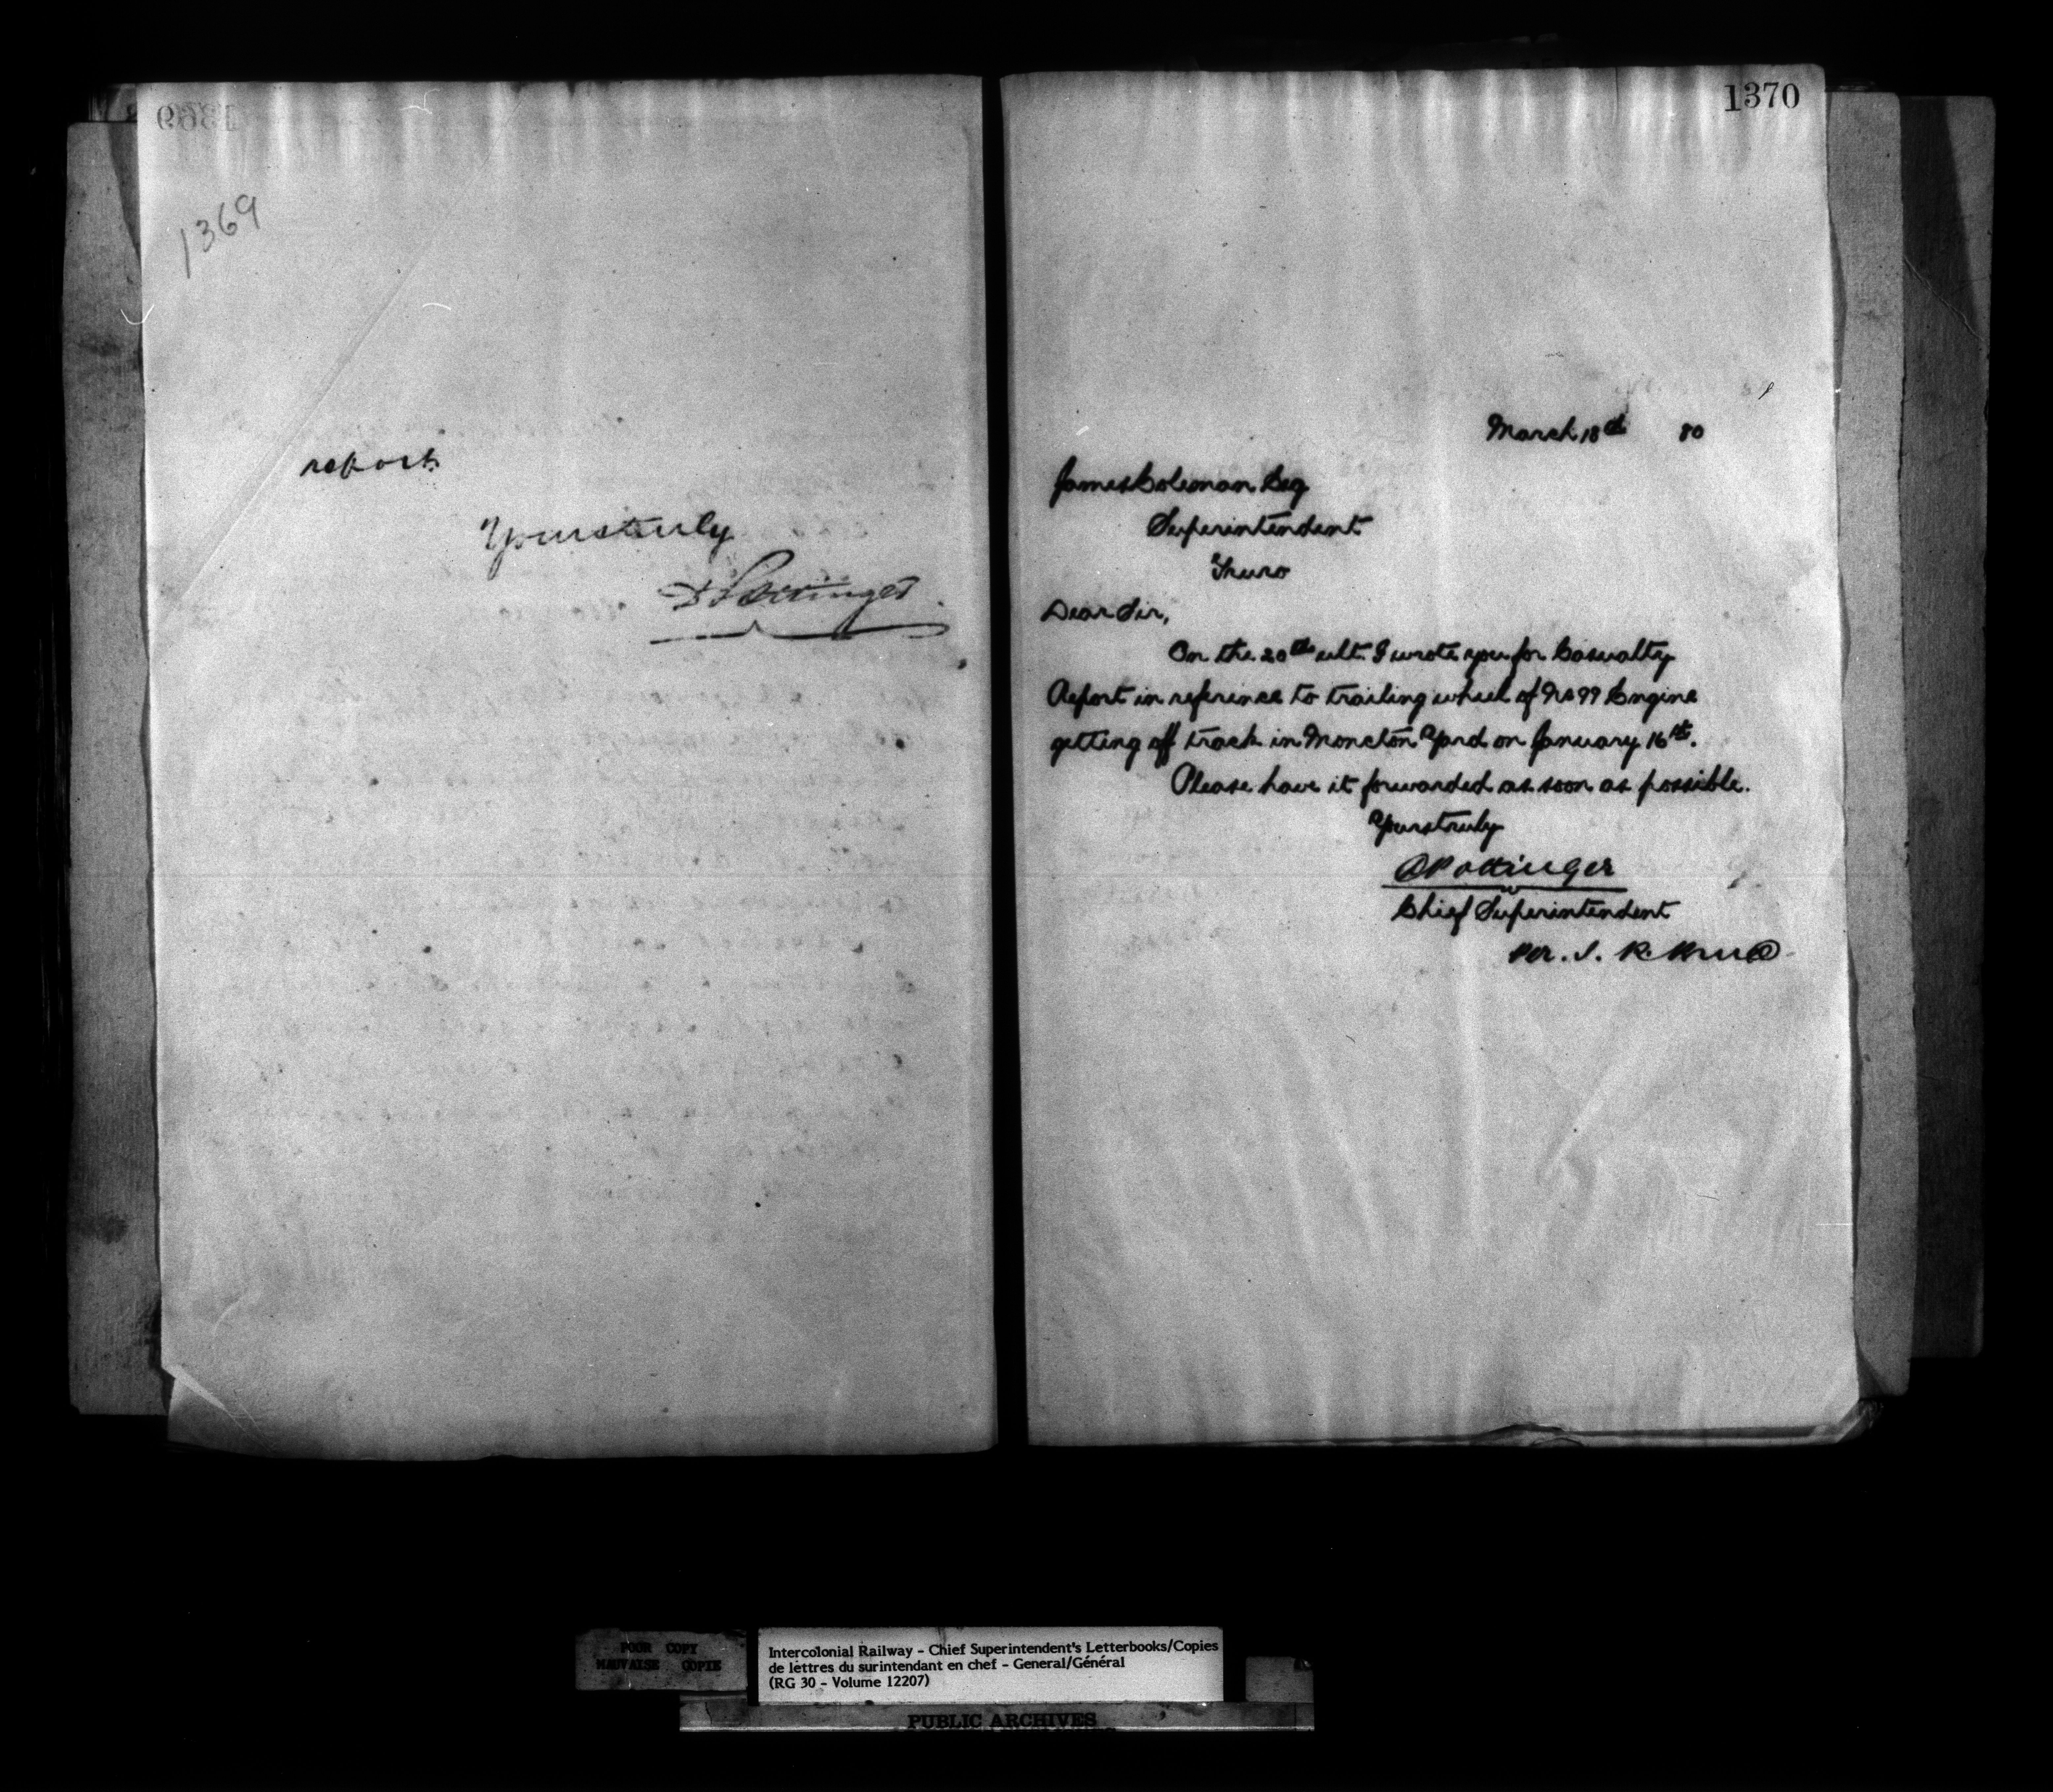 1369
1369
report.
Yours truly
D Pottinger
1370
March 18th 80
James Coleman Esq
Superintendent
Truro
Dear Sir,
On the 20th ult. I wrote you for Casualty
Report in reference to trailing wheel of No 99 Engine
getting off track in Moncton Yard on January 16th.
Please have it forwarded as soon as possible.
Yours truly
D Pottinger
Chief Superintendent
per. J. R. Bruce
POOR COPY
MAUVAISE COPIE
Intercolonial Railway - Chief Superintendent's Letterbooks/Copies
de lettres du surintendant en chef - General/Général
(RG 30 - Volume 12207)
PUBLIC ARCHIVES